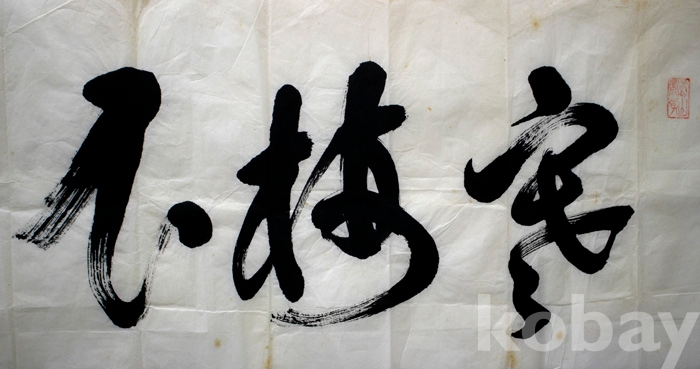 寒梅不
kobay